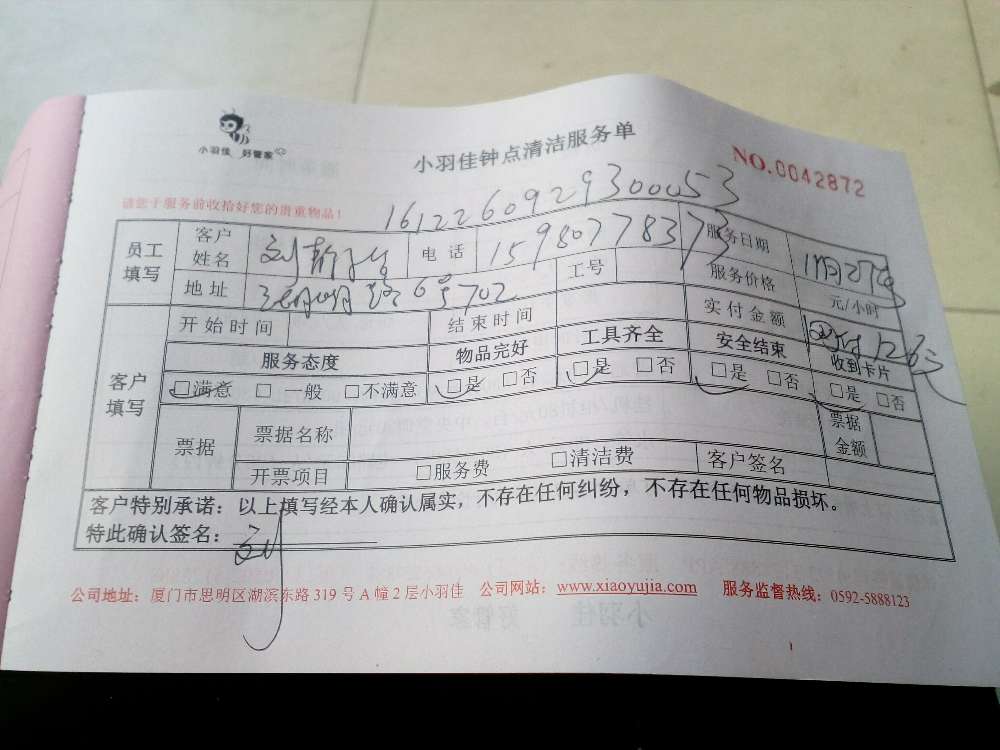 小羽佳 好管家
小羽佳钟点清洁服务单
NO.0042872
请您于服务前收拾好您的贵重物品！
16122609293000053
员工填写 客户姓名 刘 电话 15980778373 服务日期 11月27号
地址 路6号702 工号 服务价格 元/小时
客户填写 开始时间 结束时间 实付金额 126元
服务态度 物品完好 工具齐全 安全结束 收到卡片
□满意 □一般 □不满意 □是 □否 □是 □否 □是 □否 □是 □否
票据 票据名称 票据金额
开票项目 □服务费 □清洁费 客户签名
客户特别承诺：以上填写经本人确认属实，不存在任何纠纷，不存在任何物品损坏。
特此确认签名：刘
公司地址：厦门市思明区湖滨东路 319 号 A 幢 2 层小羽佳 公司网站：www.xiaoyujia.com 服务监督热线：0592-5888123